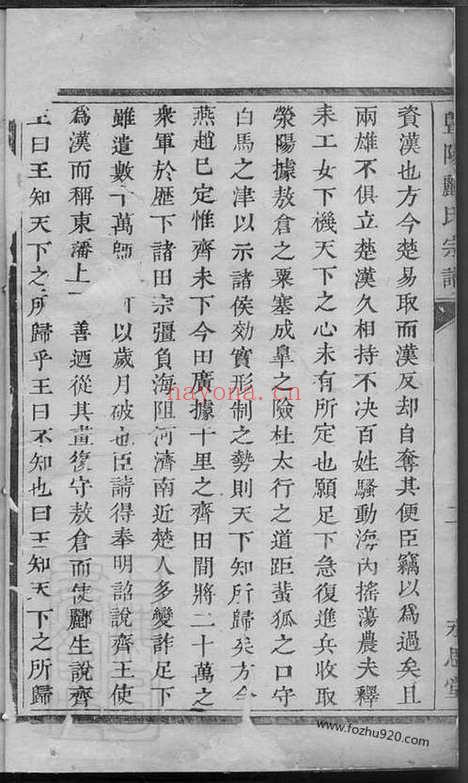 資漢也方今楚易取而漢反却自奪其便臣竊以為過矣且
兩雄不俱立楚漢久相持不决百姓騷動海內搖蕩農夫釋
耒工女下機天下之心未有所定也願足下急復進兵收取
滎陽據敖倉之粟塞成皐之險杜太行之道距蜚狐之口守
白馬之津以示諸侯効實形制之勢則天下知所歸矣方今
燕趙已定惟齊未下今田廣據千里之齊田間將二十萬之
衆軍於歷下諸田宗彊負海阻河濟南近楚人多變詐足下
雖遣數十萬師可以歲月破也臣請得奉明詔說齊王使
為漢而稱東藩上善迺從其畫復守敖倉而使酈生說齊
王曰王知天下之所歸乎王曰不知也曰王知天下之所歸
暨陽酈氏宗譜
二
永思堂
nayona.cn
www.fozhu920.com